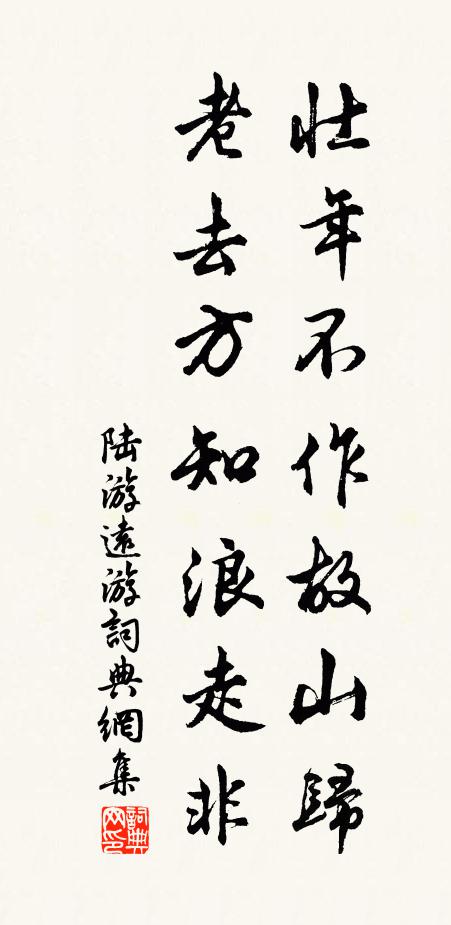 壮年不作故山歸
老去方知浪走非
陆游遠游詞典網集
詞典网印